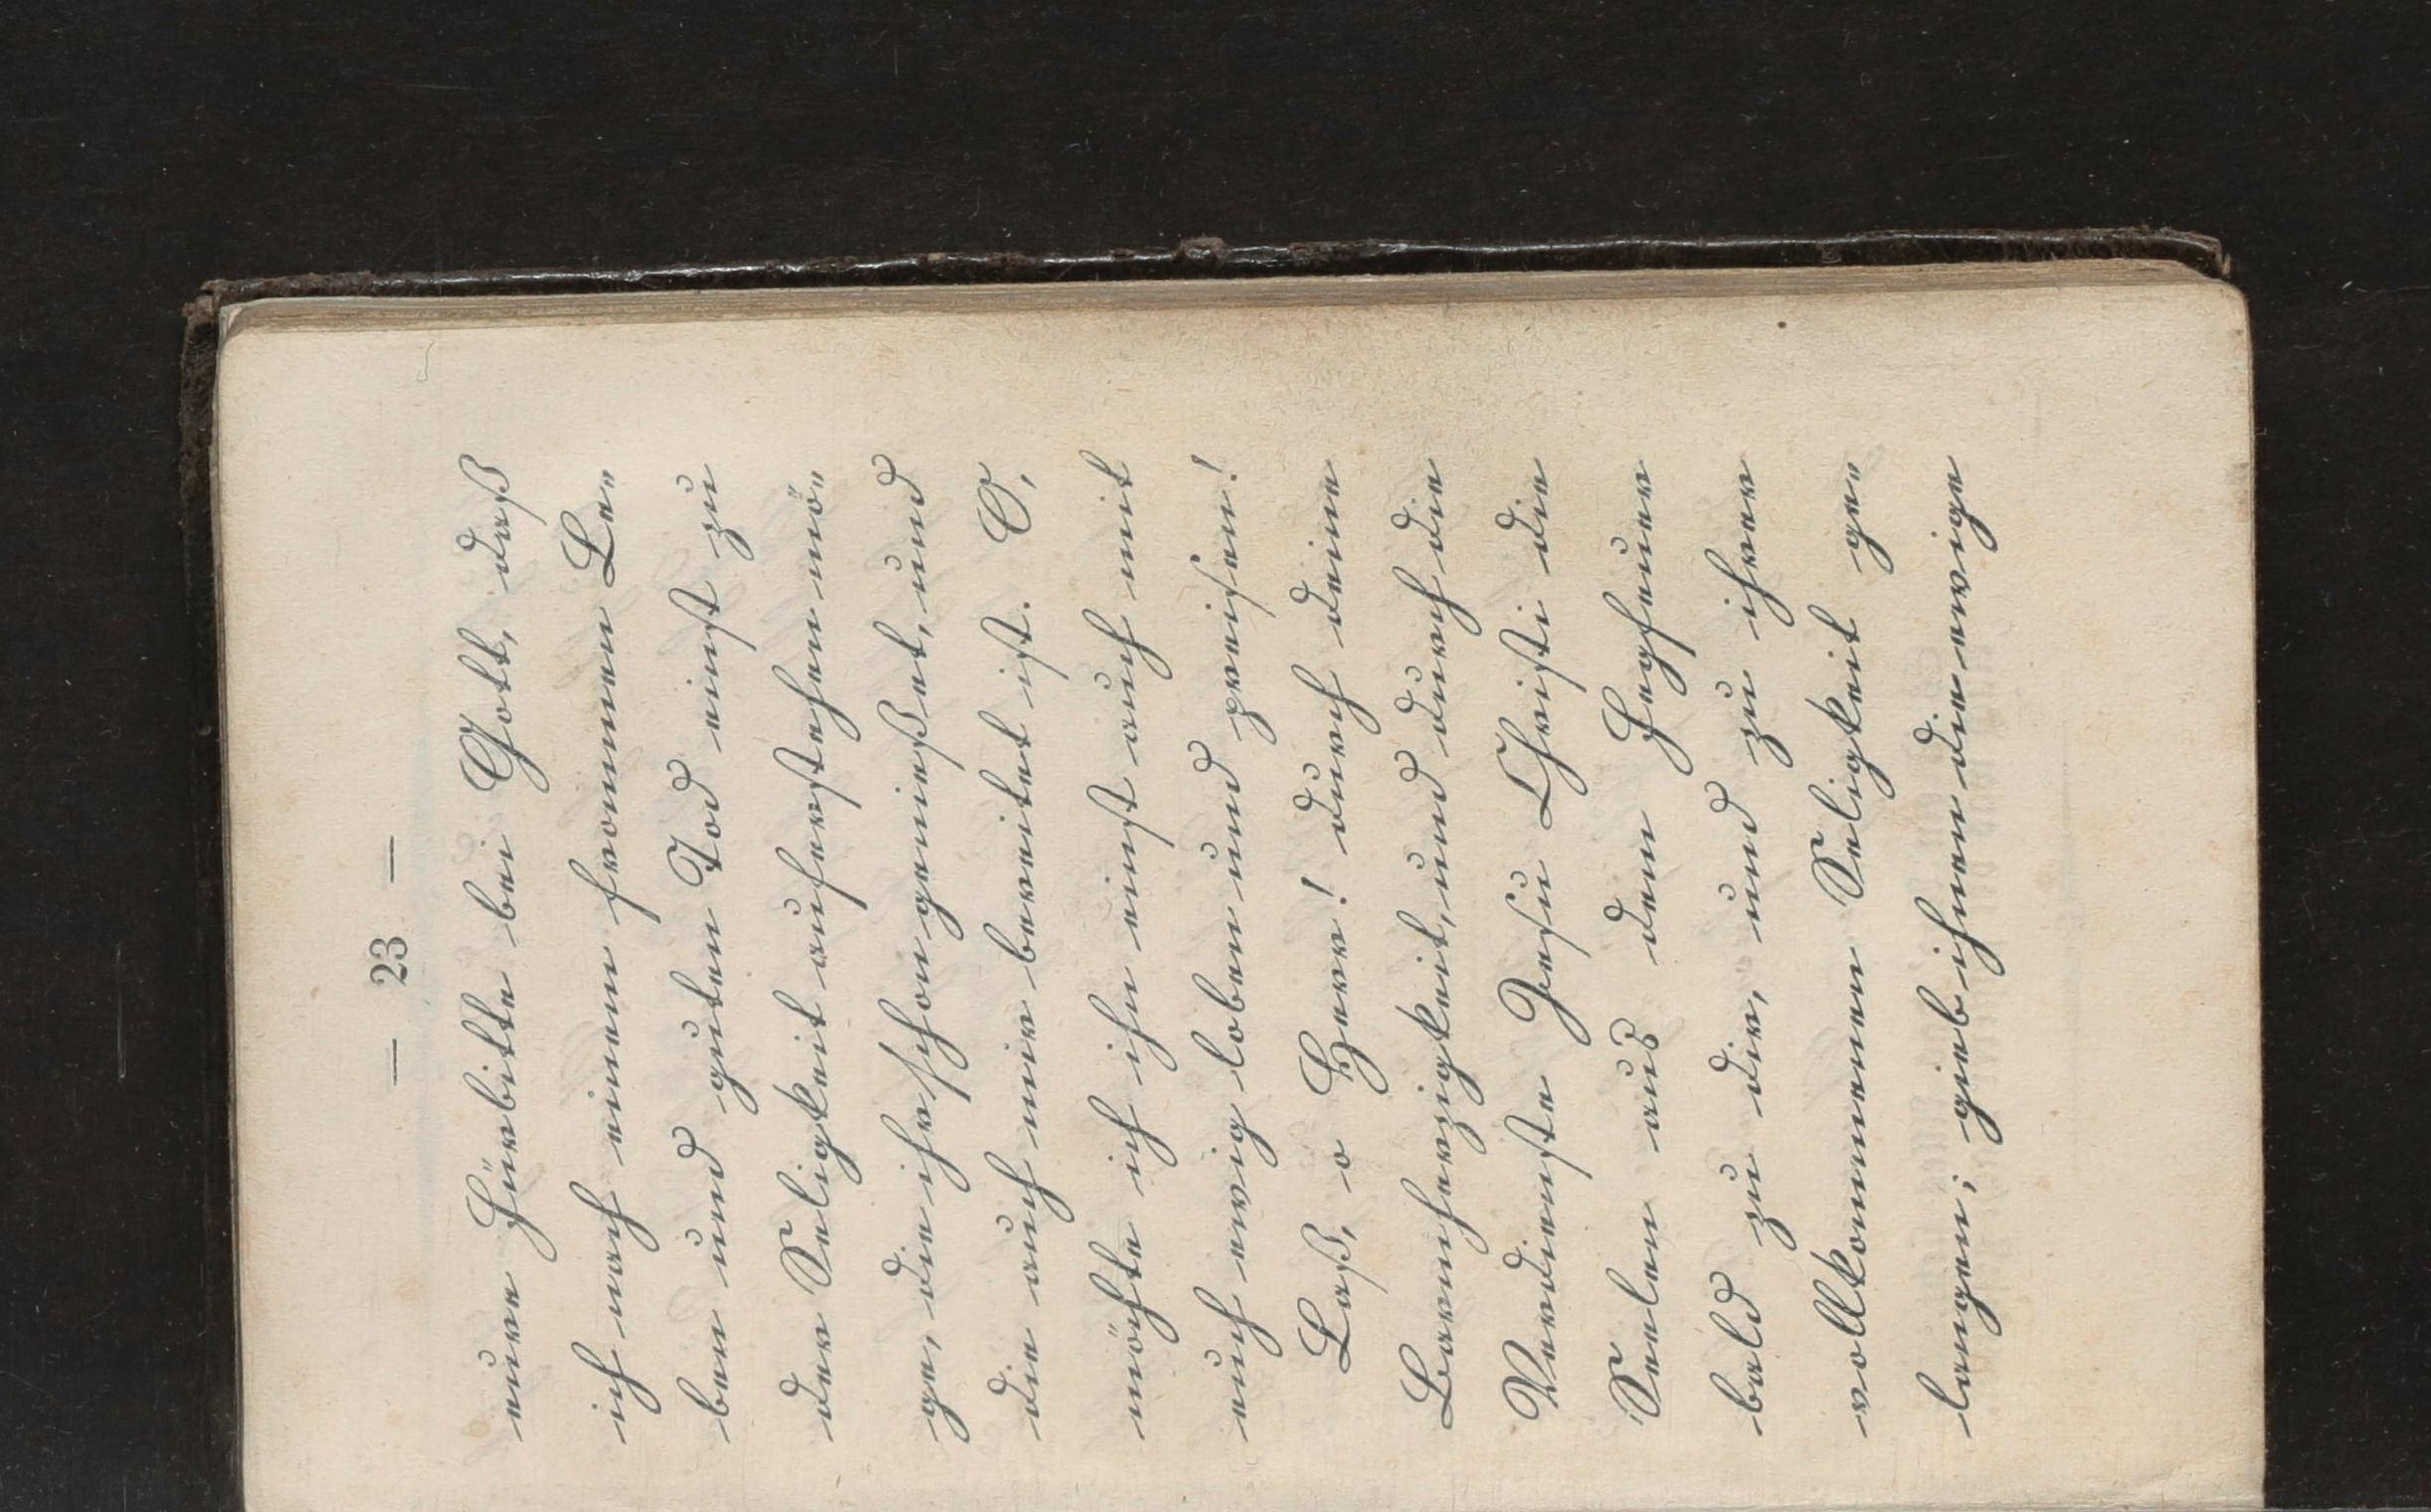 — 23 —
eure Fürbitte bei Gott, daß
ich nach einem frommen Le-
ben und guten Tod einst zu
der Seligkeit auferstehen mö-
ge, die ihr schon genießet, und
die auch mir bereitet ist. O,
möchte ich ihn einst auch mit
euch ewig loben und preisen!
Laß, o Herr! durch deine
Barmherzigkeit, und durch die
Verdienste Jesu Christi die
Seelen aus dem Fegfeuer
bald zu dir, und zu ihrer
vollkommenen Seligkeit ge-
langen; gieb ihnen die ewige